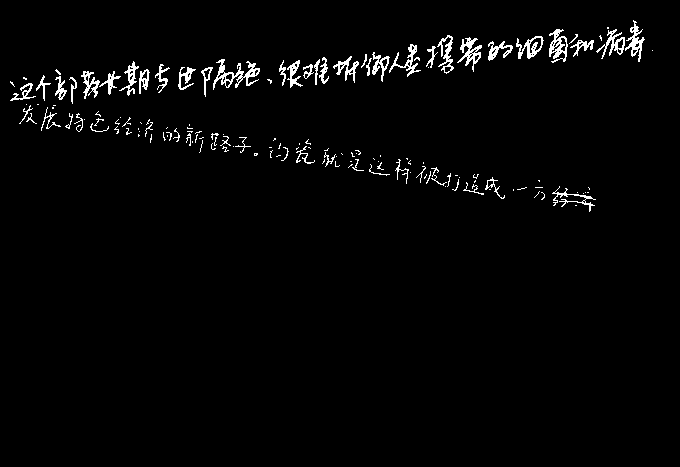 这个部落长期与世隔绝、很难抵御人类携带的细菌和病毒.
发展特色经济的新路子。钧瓷就是这样被打造成一方